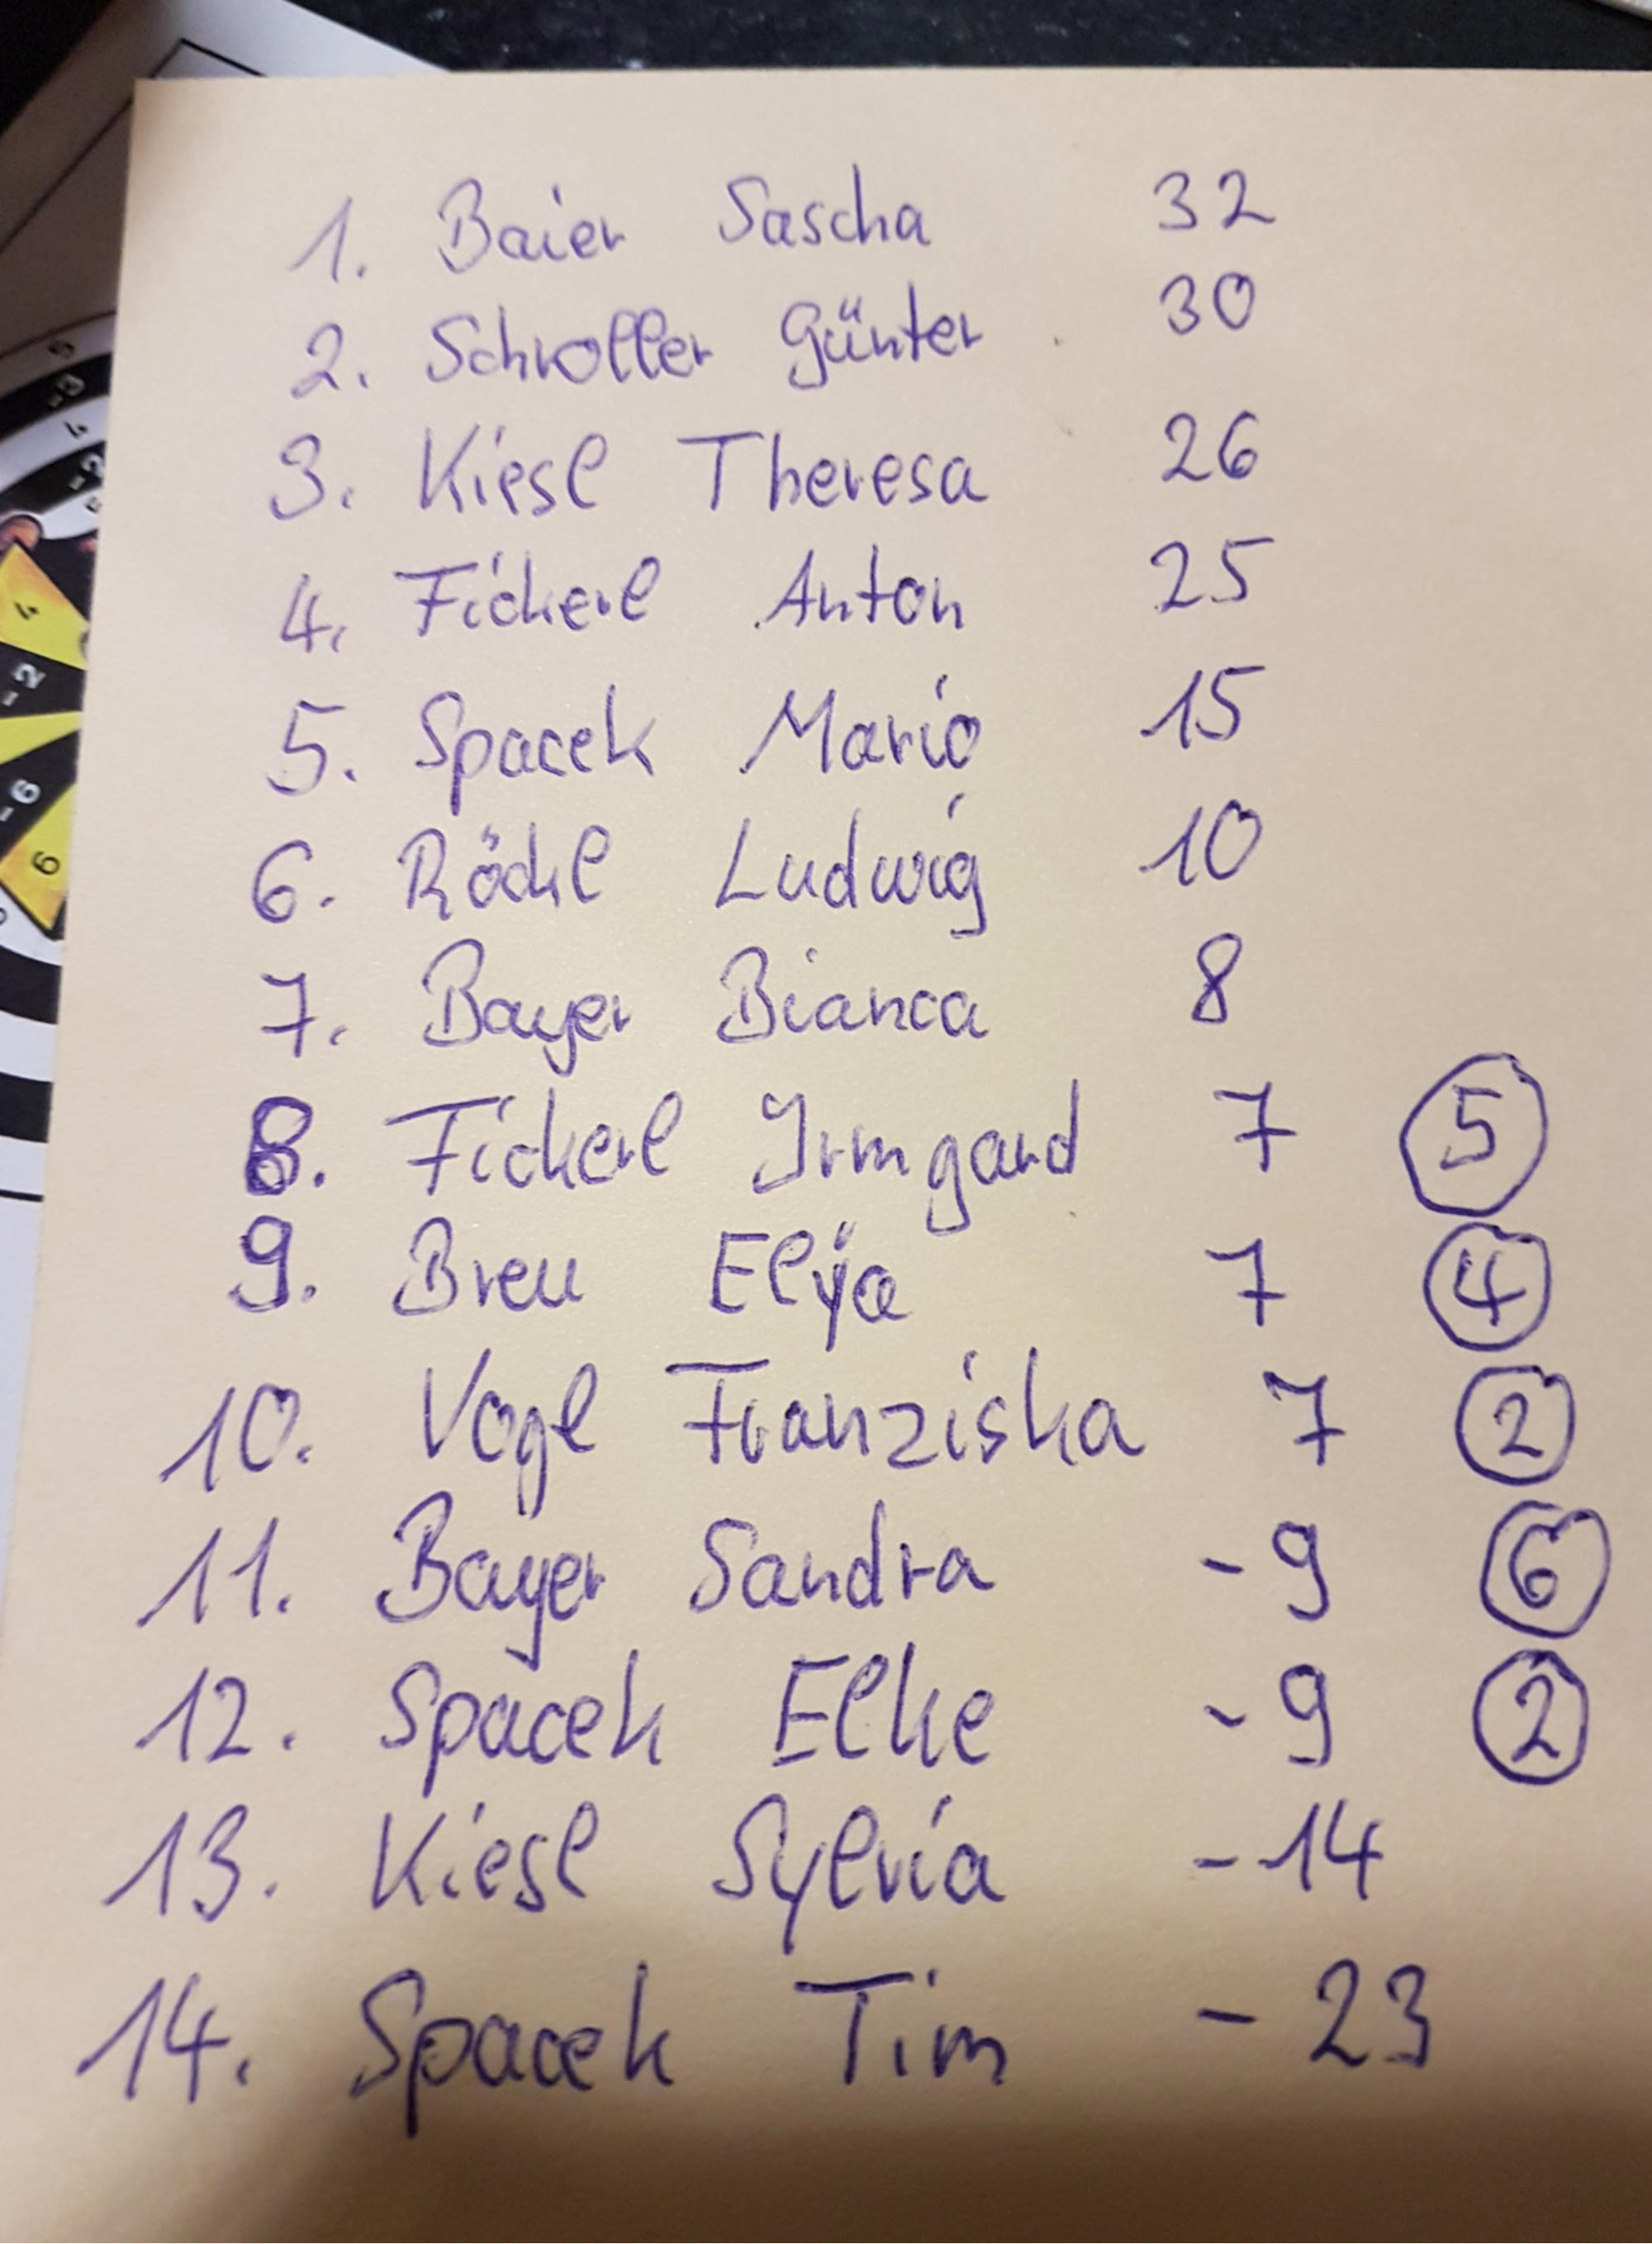 1. Baier Sascha 32
2. Schroller Günter 30
3. Kiesl Theresa 26
4. Fickerl Anton 25
5. Spacek Mario 15
6. Rödl Ludwig 10
7. Bayer Bianca 8
8. Fickerl Irmgard 7 5
9. Breu Elija 7 4
10. Vogl Franziska 7 2
11. Bayer Sandra -9 6
12. Spacek Elke -9 2
13. Kiesl Sylvia -14
14. Spacek Tim -23